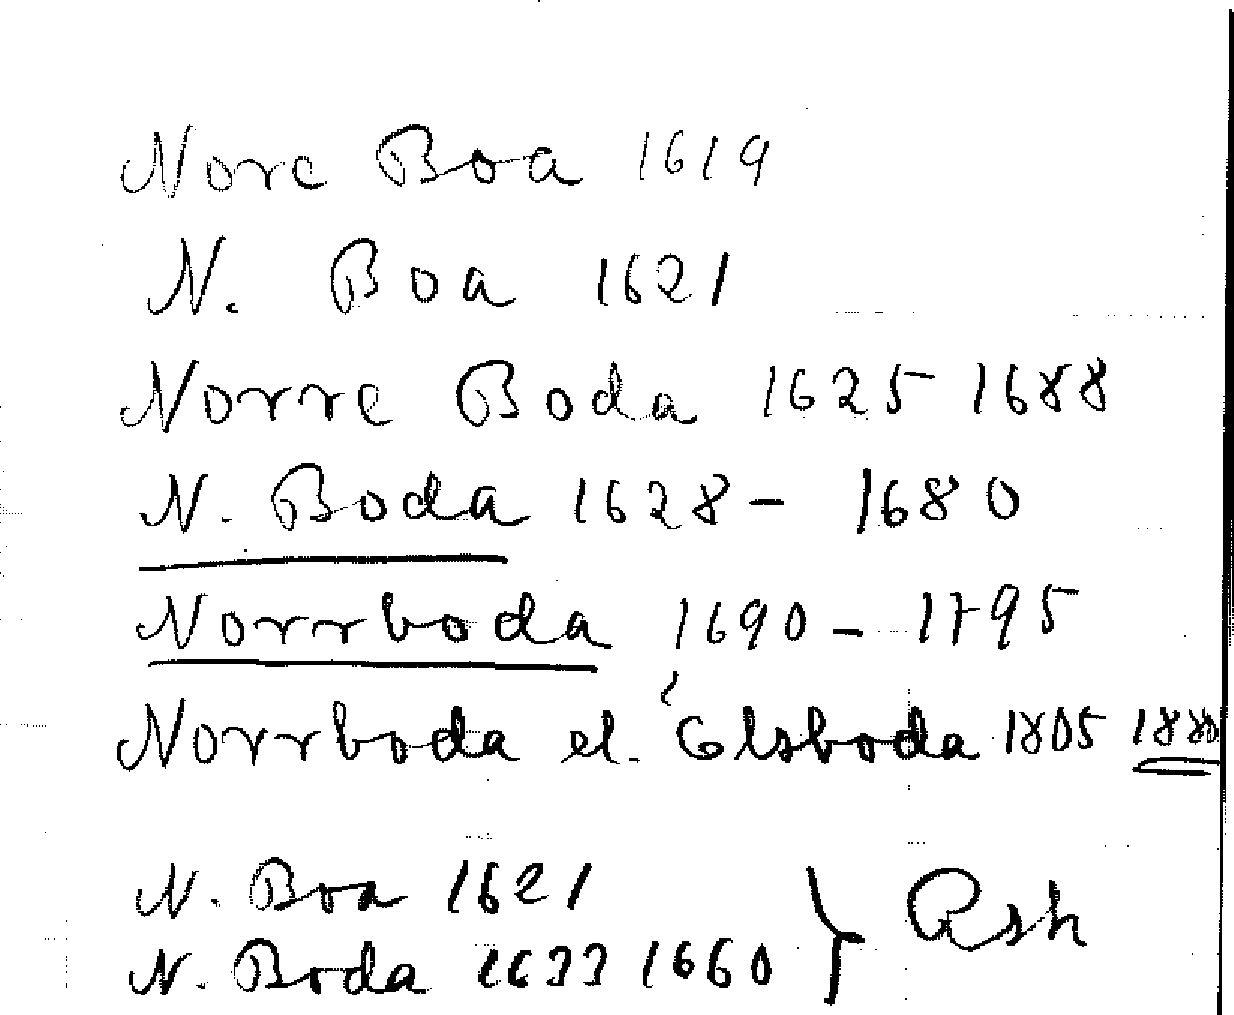 Nore Boa 1619
N. Boa 1621
Norre Boda 1625 1688
N. Boda 1628 - 1680
Norrboda 1690 - 1795
Norrboda el. Elsboda 1805 1880
N. Boa 1621
N. Boda 1633 1660 } Rsh